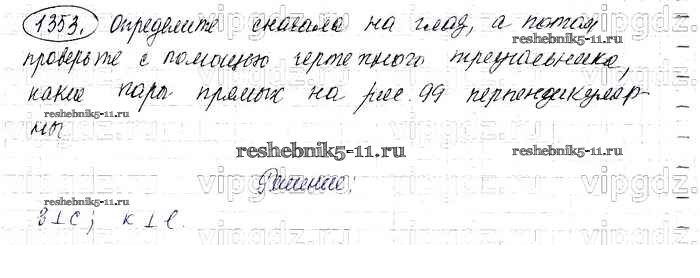 1353. Определите сначала на глаз, а потом
reshebnik5-11.ru
проверьте с помощью чертежного треугольника,
какие пары прямых на рис. 99 перпендикуляр-
reshebnik5-11.ru
reshebnik5-11.ru
ны
reshebnik5-11.ru
vipgdz.ru
Решение:
в⊥с; к⊥l.
vipgdz.ru